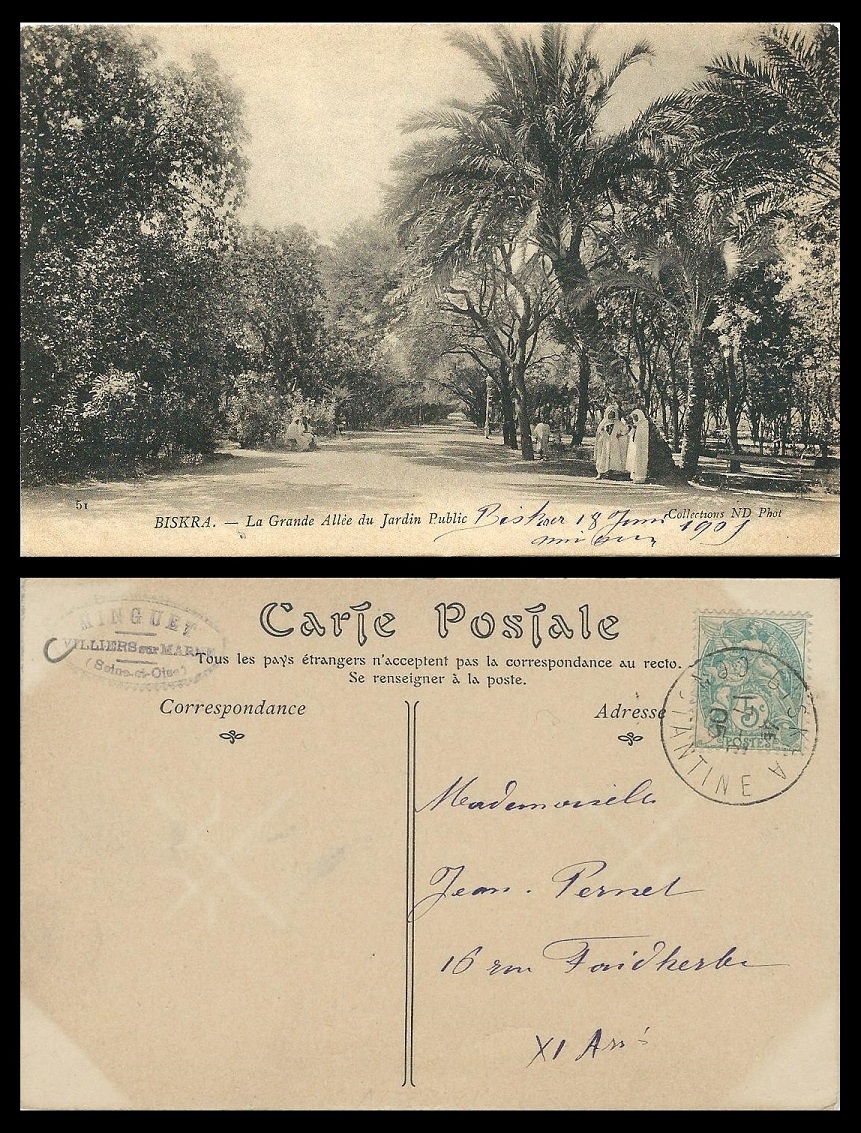 51
BISKRA. — La Grande Allée du Jardin Public
Collections ND Phot
Biskra 18 Juin 1905
MINGUET
VILLIERS sur MARNE
(Seine-et-Oise)
Carte Postale
Tous les pays étrangers n'acceptent pas la correspondance au recto.
Se renseigner à la poste.
Correspondance
Adresse
5c
POSTES
BISKRA
CONSTANTINE
05
Mademoiselle
Jean. Pernet
16 rue Faidherbe
XI Arrt